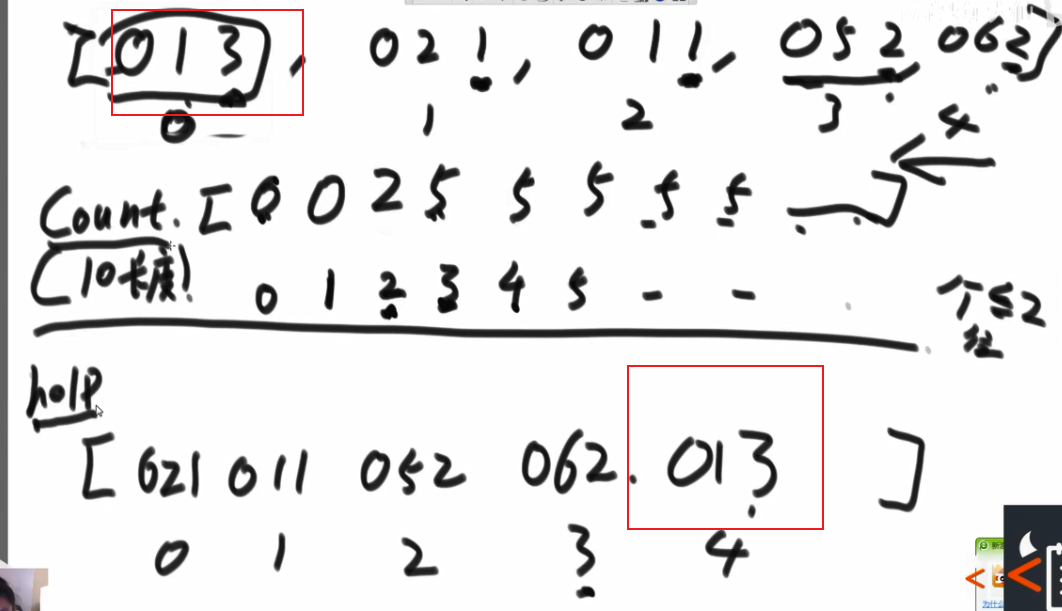 [013, 021, 011, 052, 062]
0 1 2 3 4
Count. [0 0 2 5 5 5 5 5 ]
(10长度)
0 1 2 3 4 5 - -
个≤2
help
[021 011 052 062. 013 ]
0 1 2 3 4